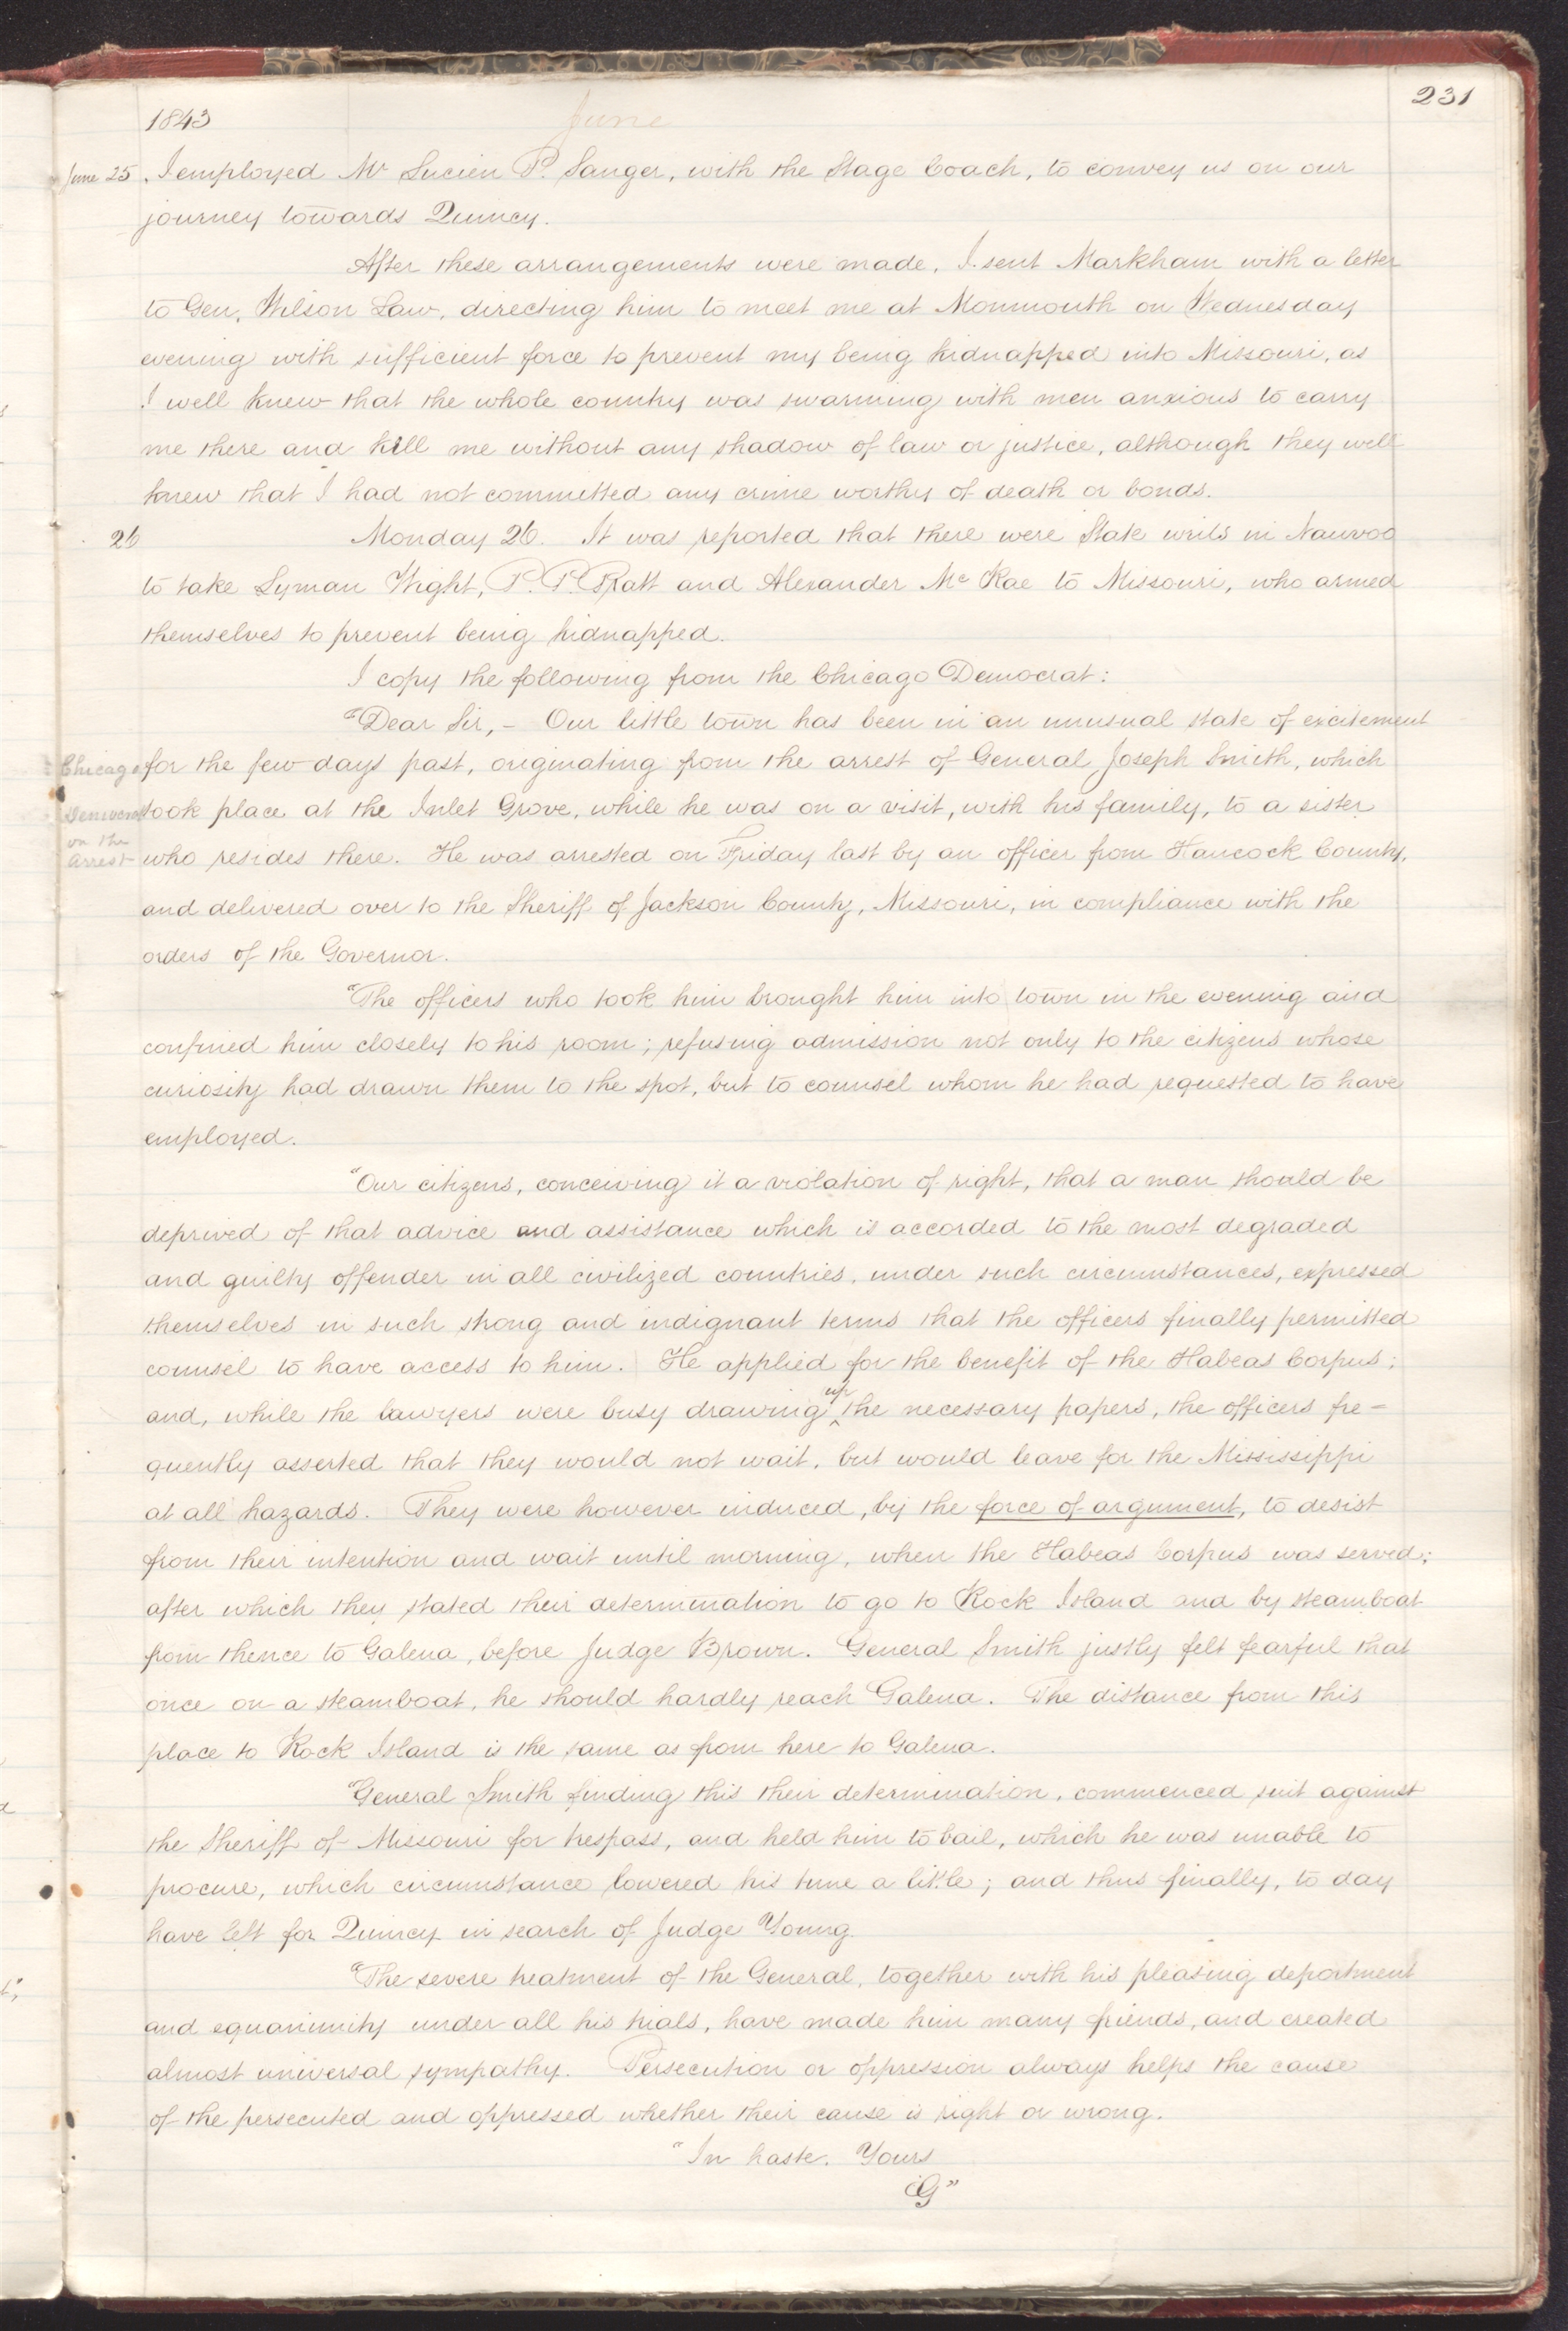 231
1843 June
June 25. I employed Mr Lucien P. Sanger, with the Stage Coach, to convey us on our
journey towards Quincy.
After these arrangements were made, I sent Markham with a letter
to Gen. Wilson Law, directing him to meet me at Monmouth on Wednesday
evening with sufficient force to prevent my being kidnapped into Missouri, as
I well knew that the whole country was swarming with men anxious to carry
me there and kill me without any shadow of law or justice, although they well
knew that I had not committed any crime worthy of death or bonds.
26 Monday 26. It was reported that there were State writs in Nauvoo
to take Lyman Wight, P. P. Pratt and Alexander Mc Rae to Missouri, who armed
themselves to prevent being kidnapped.
I copy the following from the Chicago Democrat:
"Dear Sir, – Our little town has been in an unusual state of excitement
Chicago for the few days past, originating from the arrest of General Joseph Smith, which
Democrat took place at the Inlet Grove, while he was on a visit, with his family, to a sister
on the
Arrest who resides there. He was arrested on Friday last by an officer from Hancock County,
and delivered over to the Sheriff of Jackson County, Missouri, in compliance with the
orders of the Governor.
"The officers who took him brought him into town in the evening and
confined him closely to his room; refusing admission not only to the citizens whose
curiosity had drawn them to the spot, but to counsel whom he had requested to have
employed.
"Our citizens, conceiving it a violation of right, that a man should be
deprived of that advice and assistance which is accorded to the most degraded
and guilty offender in all civilized countries, under such circumstances, expressed
themselves in such strong and indignant terms that the officers finally permitted
counsel to have access to him. He applied for the benefit of the Habeas Corpus;
and, while the lawyers were busy drawing up the necessary papers, the officers fre-
quently asserted that they would not wait, but would leave for the Mississippi
at all hazards. They were however induced, by the force of argument, to desist
from their intention and wait until morning, when the Habeas Corpus was served;
after which they stated their determination to go to Rock Island and by steamboat
from thence to Galena, before Judge Brown. General Smith justly felt fearful that
once on a steamboat, he should hardly reach Galena. The distance from this
place to Rock Island is the same as from here to Galena.
"General Smith finding this their determination, commenced suit against
the Sheriff of Missouri for trespass, and held him to bail, which he was unable to
procure, which circumstance lowered his tune a little; and thus finally, to day
have left for Quincy in search of Judge Young
"The severe treatment of the General, together with his pleasing deportment
and equanimity under all his trials, have made him many friends, and created
almost universal sympathy. Persecution or oppression always helps the cause
of the persecuted and oppressed whether their cause is right or wrong.
"In haste. Yours
"G"